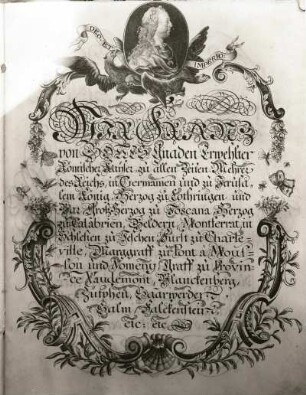 DECVS ET
IMPERIO
Wir Franz
von GOTTES Gnaden Erwehlter
Römischer Kaiser, zu allen Zeiten Mehrer
des Reichs, in Germanien und zu Jerusa-
lem König, Herzog zu Lothringen und
Bar, Groß-Herzog zu Toscana, Herzog
zu Calabrien, Geldern, Montferrat, in
Schlesien zu Teschen, Fürst zu Charle-
ville, Marggraff zu Pont à Mous-
son und Nomeny, Graff zu Provin-
ce, Vaudemont, Blanckenberg,
Zütphen, Saarwerden,
Salm, Falckenstein
etc: etc: